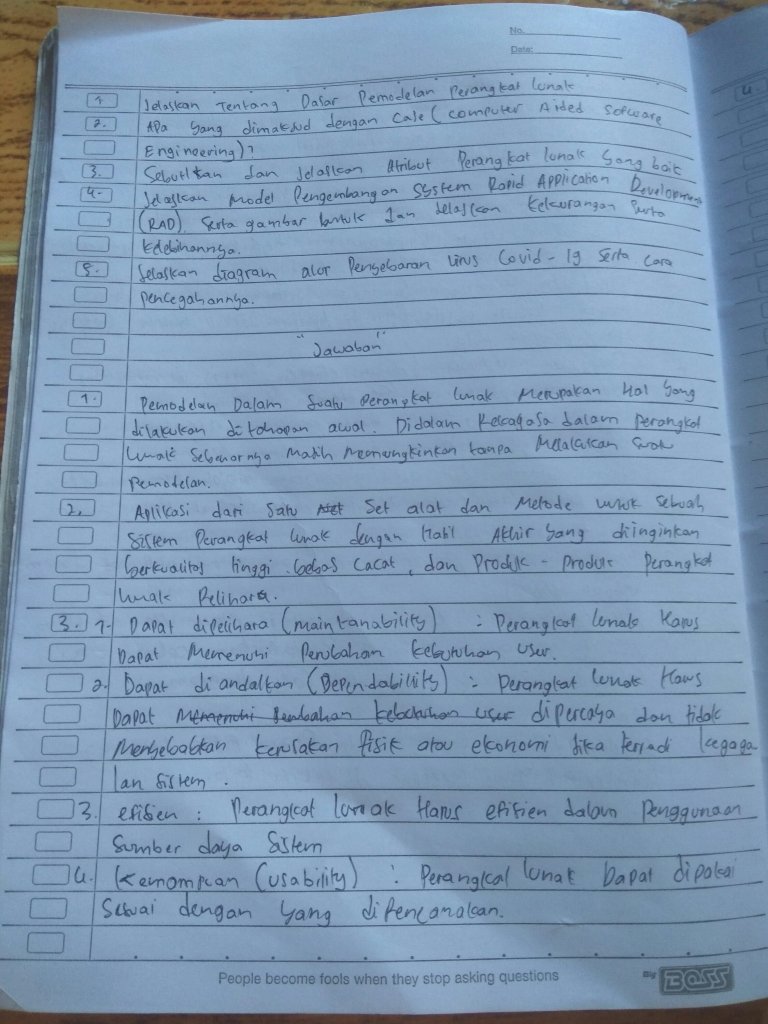 No.
Date:
1. Jelaskan Tentang Dasar Pemodelan Perangkat lunak
2. Apa yang dimaksud dengan Case (Computer Aided Sofware
Engineering)?
3. Sebutkan dan Jelaskan Atribut Perangkat lunak yang baik
4. Jelaskan Model Pengembangan System Rapid Application Development
(RAD). Serta gambar bentuk dan Jelaskan Kekurangan Serta
Kelebihannya.
5. Jelaskan diagram alur Penyebaran Virus Covid-19 Serta cara
Pencegahannya.
"Jawaban"
1. Pemodelan Dalam Suatu Perangkat lunak Merupakan Hal yang
dilakukan ditahapan awal. Didalam Rekayasa dalam perangkat
lunak Sebenarnya Masih Memungkinkan tanpa Melakukan
Pemodelan.
2. Aplikasi dari Satu Set alat dan Metode untuk Sebuah
Sistem Perangkat lunak dengan Hasil Akhir yang diinginkan
berkualitas tinggi, bebas Cacat, dan Produk - Produk Perangkat
lunak Pelihara.
3. 1. Dapat dipelihara (maintanability) : Perangkat lunak Harus
Dapat Memenuhi Perubahan kebutuhan user.
2. Dapat diandalkan (Dependability) : Perangkat lunak Harus
Dapat Memenuhi Perubahan kebutuhan user dipercaya dan tidak
Menyebabkan kerusakan fisik atau ekonomi Jika terjadi kegaga
lan Sistem.
3. efisien : Perangkat lunak Harus efisien dalam Penggunaan
Sumber daya Sistem
4. Kemampuan (usability) : Perangkat lunak Dapat dipakai
Sesuai dengan yang direncanakan.
People become fools when they stop asking questions
By BOSS
4